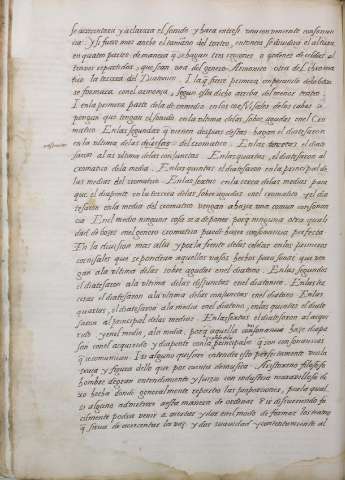 se acrecentara y aclarara el sonido y hara entresi una conveniente consonan
cia. Y si fuere mas ancho el tamaño del teatro, entonces se dividira el altura
en quatro partes de manera q̃ se hagan tres regiones o ordenes de celdas al
traves repartidas, que sean una del genero Armonico otra del chroma
tico la tercera del Diatonico. I la q̃ fuere primera empeçando dela baxa
se formara con el armonia, segun esta dicho arriba del menor teatro.
I en la primera parte dela de en medio en los cornisales de los cabos se
pongan que tengan el sonido en la ultima delas sobre agudas en el Cro
matico. En las segundas q̃ vienen despues destas hagan el diatesaron
en la ultima de las diversas del cromatico. En las terceras el diate
saron al as ultima del conjunctas. En las quartas, el diatesaron al
cromatico dela media. En las quintas el diatesaron en la principal de
las medias del cromatico. En las sextas en la cerca delas medias para
que el diapente en la tercera delas sobre agudas en el cromatico y el dia
tesaron en la media del cromatico vengan a hazer una comun consonan
cia. En el medio ninguna cosa se a de poner porq̃ ninguna otra quali
dad de bozes en el genero cromatico puede hazer consonancia perfecta
En la division mas alta y por la frente delas celdas en los primeros
cornisales que se pondran aquellos vasos hechos para sonar que ven
gan ala ultima delas sobre agudas en el diatono. En las segundas
el diatesaron ala ultima delas disjunctas en el diatono. En las ter
ceras el diatesaron ala ultima delas conjunctas en el diatono. En las
quartas, el diatesaron ala media en el diatono, en las quintas el diate
saron al principal delas medias. En las sextas el diatesaron al acqui
rido y en el medio, ala media, porq̃ aquella consonancia haze diapa
son con el acquerido y diapente con la principal q̃ son consonancias
q̃ se comunican. I si alguno quisiere entender esto perfectamente vea la
traça y figura dello que por cuenta de musica Aristoxeno filosofo
hombre de gran entendimiento y fuerzo con industria maravillosa de
xo hecha donde generalmente repartio las proporciones, por la qual
si alguno advirtiere a esta manera de ordenar P ir discurriendo fa
cilmente podra venir a acertar y dar en el modo de formar los teatros
q̃ sirva de acrecentar la voz y dar suavidad y contentamiento al